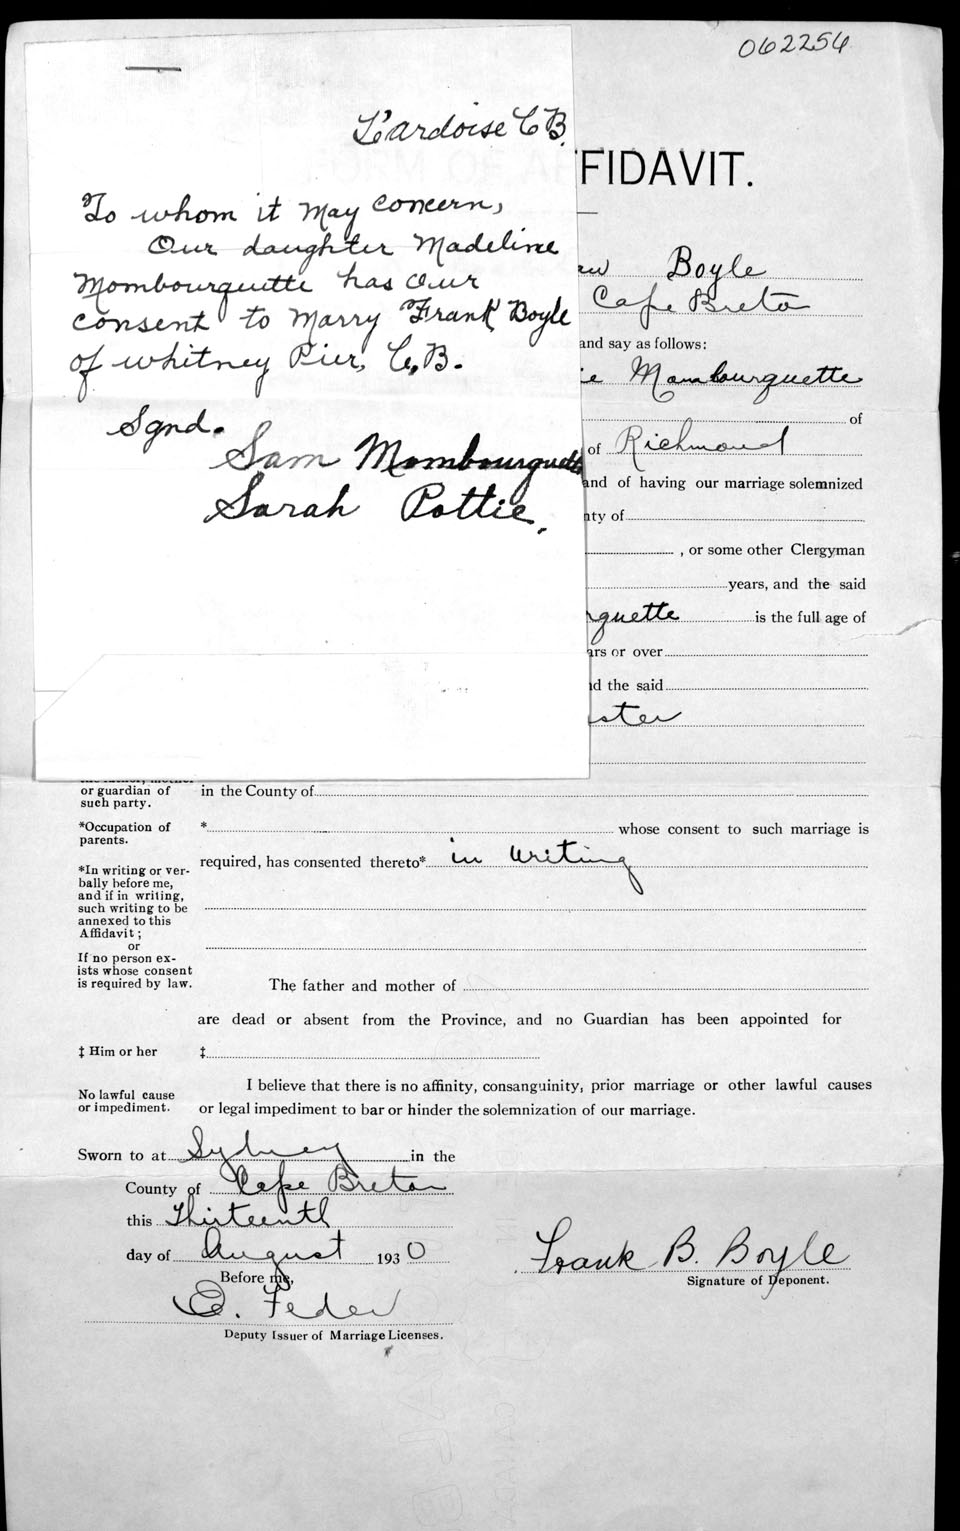 062254
L'ardoise C.B.
To whom it May Concern,
Our daughter Madeline
Mombourquette has our
consent to Marry Frank Boyle
of Whitney Pier, C.B.
Sgnd.
Sam Mombourquette
Sarah Pottie.
FFIDAVIT.
Boyle
Cape Breton
and say as follows:
Mombourquette
of
of Richmond
and of having our marriage solemnized
nty of
, or some other Clergyman
years, and the said
rquette is the full age of
ars or over
nd the said
or guardian of
such party.
in the County of
*Occupation of
parents.
* whose consent to such marriage is
required, has consented thereto* in writing
*In writing or ver-
bally before me,
and if in writing,
such writing to be
annexed to this
Affidavit;
or
If no person ex-
ists whose consent
is required by law.
The father and mother of
are dead or absent from the Province, and no Guardian has been appointed for
‡ Him or her ‡
No lawful cause
or impediment.
I believe that there is no affinity, consanguinity, prior marriage or other lawful causes
or legal impediment to bar or hinder the solemnization of our marriage.
Sworn to at Sydney in the
County of Cape Breton
this Thirteenth
day of August 1930
Before me,
Frank B. Boyle
Signature of Deponent.
Deputy Issuer of Marriage Licenses.